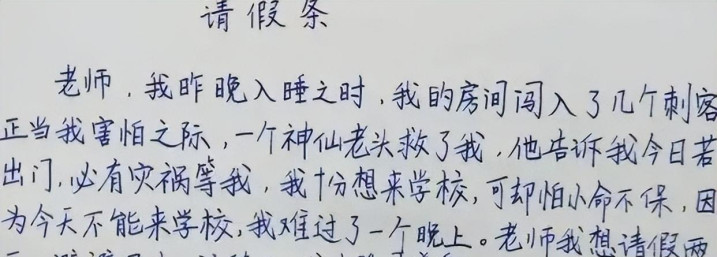 请假条
老师,我昨晚入睡之时,我的房间闯入了几个刺客
正当我害怕之际,一个神仙老头救了我,他告诉我今日若
出门,必有灾祸等我,我十分想来学校,可却怕小命不保,因
为今天不能来学校,我难过了一个晚上。老师我想请假两